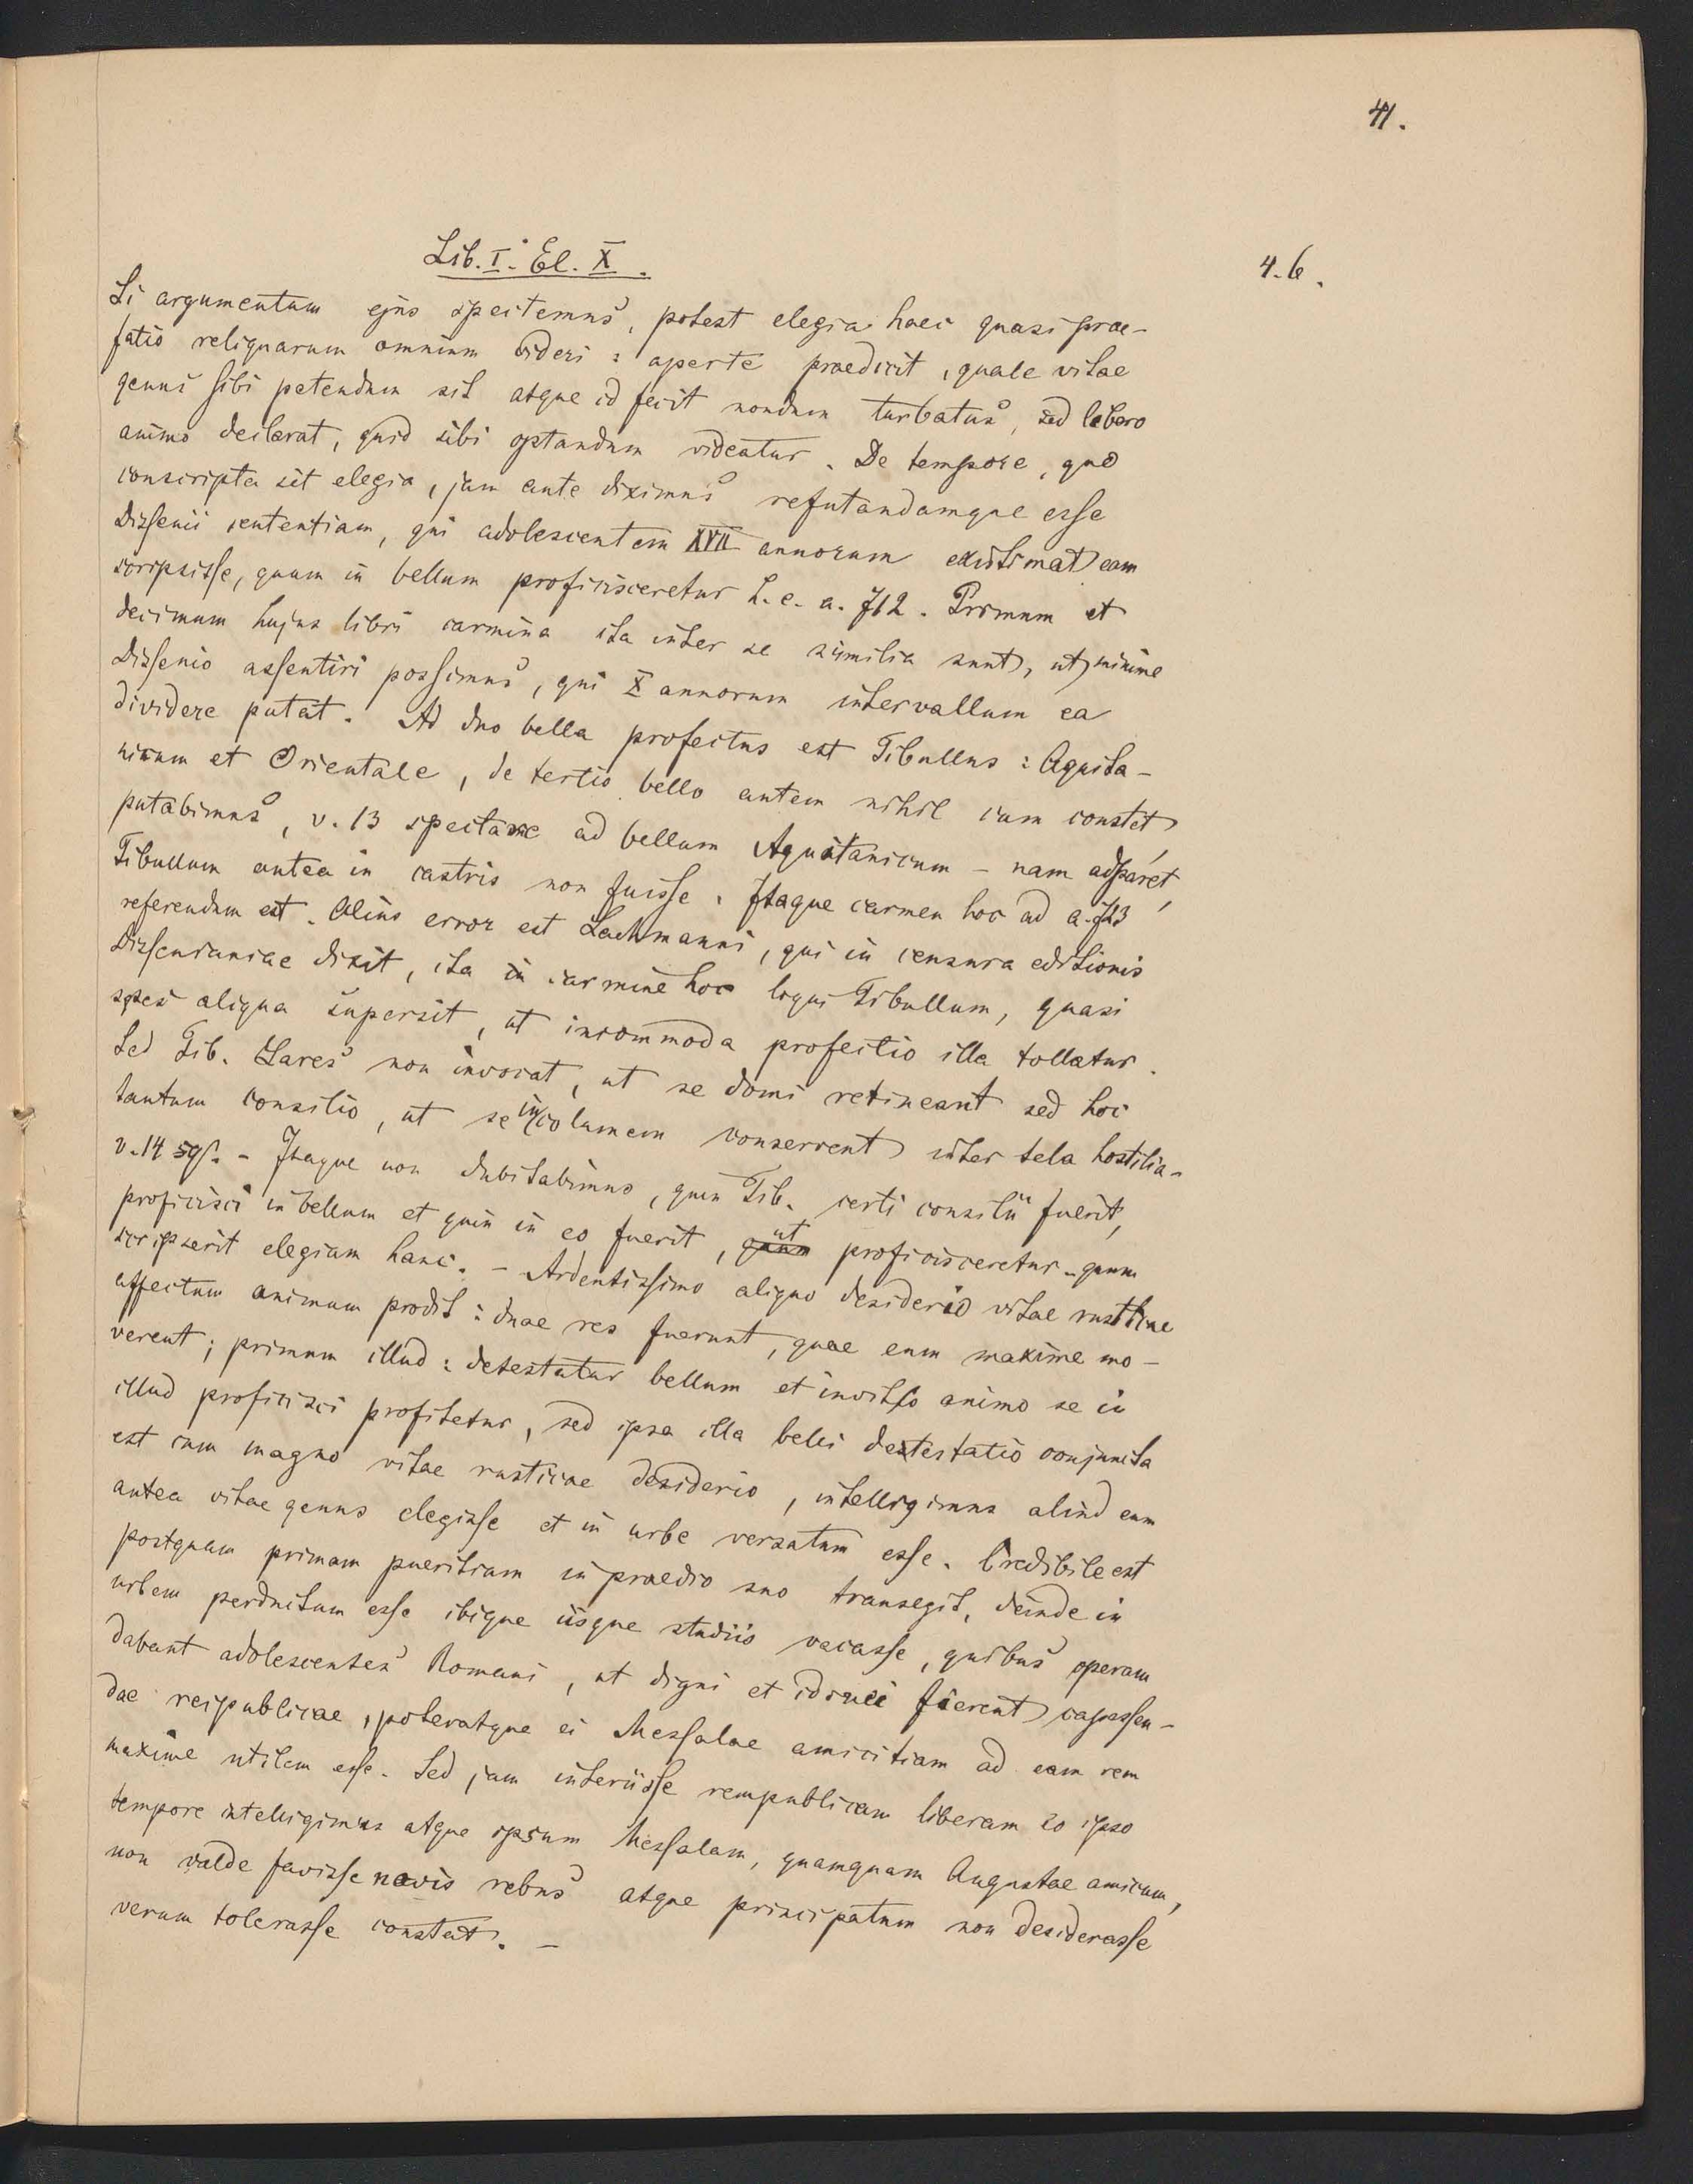 41.
4. 6.
Lib. I. El. X.
Si argumentum ejus spectemus, potest elegia haec quasi prae-
fatio reliquarum omnium videri: aperte praedicit, quale vitae
genus sibi petendum sit atque id fecit nondum turbatus, sed libero
animo declarat, quid sibi optandum videatur. De tempore, quo
conscripta sit elegia, jam ante diximus refutandamque esse
Dissenii sententiam, qui adolescentem XVII annorum existimat eam
scripsisse, quum in bellum proficisceretur h. e. a. 712. Primum et
decimum hujus libri carmina ita inter se similia sunt, ut minime
Dissenio assentiri possimus, qui X annorum intervallum ea
dividere putat. Ad duo bella profectus est Tibullus: Aquita-
nicum et Orientale, de tertio bello autem nihil cum constet,
putabimus, v. 13 spectare ad bellum Aquitanicum – nam adparet,
Tibullum antea in castris non fuisse. Itaque carmen hoc ad a. 723
referendum est. Alius error est Lachmanni, qui in censura editionis
Dissenianae dixit, ita in carmine hoc loqui Tibullum, quasi
spes aliqua supersit, ut incommoda profectio illa tollatur.
Sed Tib. Lares non invocat, ut se domi retineant sed hoc
tantum consilio, ut se incolumem conservent inter tela hostilia.
v. 14 sqs. – Itaque non dubitabimus, quin Tib. certi consilii fuerit,
proficisci in bellum et quin in eo fuerit, ut proficisceretur – quum
scripserit elegiam hanc. – Ardentissimo aliquo desiderio vitae rusticae
affectum animum prodit: duae res fuerunt, quae eum maxime mo-
verent; primum illud: detestatur bellum et invito animo se in
illud proficisci profitetur, sed ipsa illa belli detestatio conjuncta
est cum magno vitae rusticae desiderio, intelligimus aliud eum
antea vitae genus elegisse et in urbe versatum esse. Credibile est
postquam primam pueritiam in praedio suo transegit, deinde in
urbem perductum esse ibique iisque studiis vacasse, quibus operam
dabant adolescentes Romani, ut digni et idonei fierent capessen-
dae reipublicae, poteratque ei Messalae amicitiam ad eam rem
maxime utilem esse. Sed jam interiisse rempublicam liberam eo ipso
tempore intelligimus atque ipsum Messalam, quamquam Augustae amicum,
non valde favisse novis rebus atque principatum non desiderasse
verum tolerasse constat. –